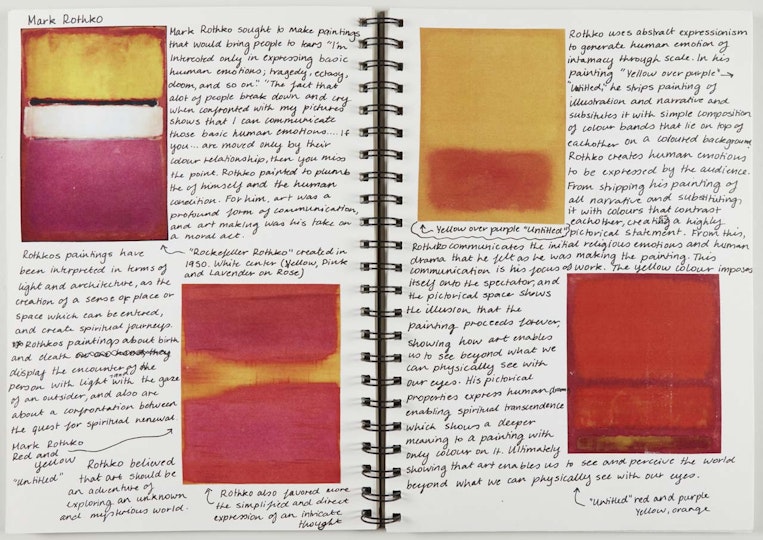 Mark Rothko
Mark Rothko sought to make paintings
that would bring people to tears "I'm
interested only in expressing basic
human emotions; tragedy, ecstasy,
doom, and so on." "The fact that
alot of people break down and cry
when confronted with my pictures
shows that I can communicate
those basic human emotions.... If
you... are moved only by their
colour relationship, then you miss
the point. Rothko painted to plumb
the of himself and the human
condition. For him, art was a
profound form of communication,
and art making was his take on
a moral act.
"Rockefeller Rothko" created in
1950. White center (Yellow, Pink
and Lavender on Rose)
Rothkos paintings have
been interpreted in terms of
light and architecture, as the
creation of a sense of place or
space which can be entered,
and create spiritual journeys.
Rothkos paintings about birth
and death
display the encounter of the
person with light and with the gaze
of an outsider, and also are
about a confrontation between
the quest for spiritual renewal.
Mark Rothko
Red and
yellow
"Untitled"
Rothko believed
that art should be
an adventure of
exploring an unknown
and mysterious world.
Rothko also favored more
the simplified and direct
expression of an intricate
thought
Rothko uses abstract expressionism
to generate human emotion of
intamacy through scale. In his
painting "Yellow over purple"
"Untitled," he strips painting of
illustration and narrative and
subsitutes it with simple composition
of colour bands that lie on top of
eachother on a coloured background.
Rothko creates human emotions
to be expressed by the audience.
From stripping his painting of
all narrative and substituting
it with colours that contrast
eachother, creating a highly
pictorical statement. From this,
Yellow over purple "Untitled"
Rothko communicates the initial religious emotions and human
drama that he felt as he was making the painting. This
communication is his focus of work. The yellow colour imposes
itself onto the spectator, and
the pictorical space shows
the illusion that the
painting proceeds forever,
showing how art enables
us to see beyond what we
can physically see with
our eyes. His pictorical
properties express human
enabling spiritual transcendence
which shows a deeper
meaning to a painting with
only colour on it. Ultimately
showing that art enables us to see and perceive the world
beyond what we can physically see with our eyes.
"Untitled" red and purple
Yellow, orange